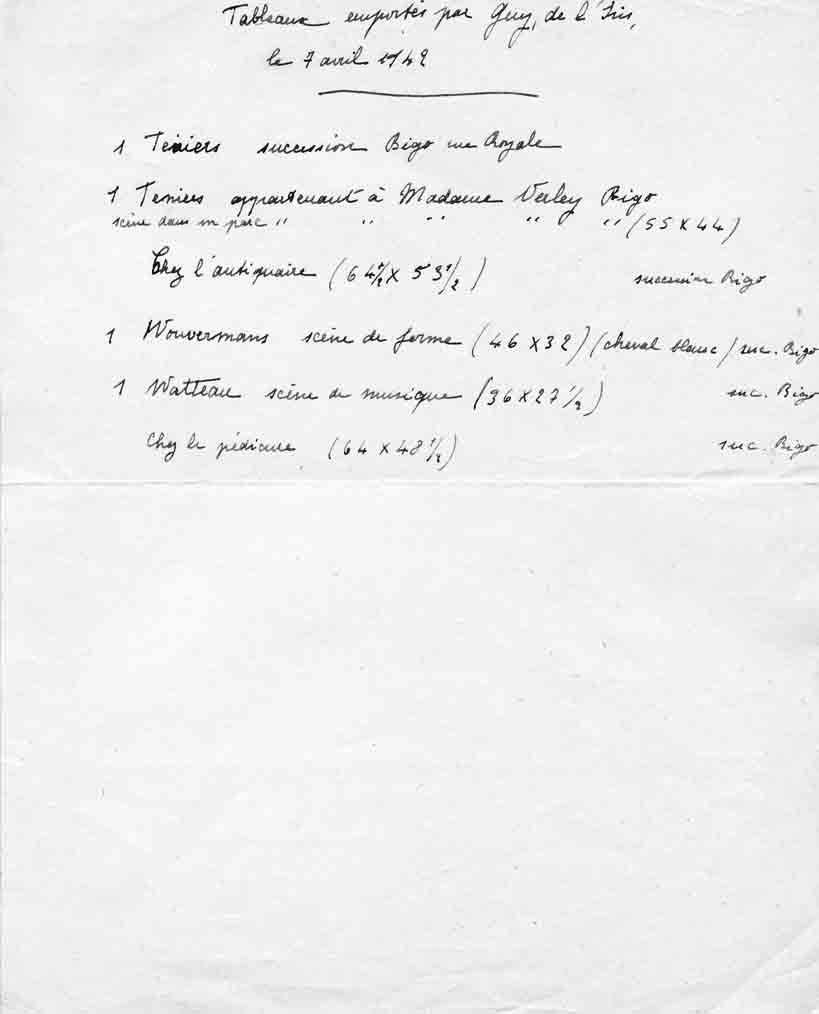 Tableaux emportés par Guy, de l'Iris,
le 7 avril 1942
1 Téniers succession Bigo rue Royale
1 Teniers appartenant à Madame Verley Bigo
scène dans un parc " " " " " (55 X 44)
Chez l'antiquaire (64 1/2 X 53 1/2) succession Bigo
1 Wouvermans scène de ferme (46 X 32) (cheval blanc) suc. Bigo
1 Watteau scène de musique (36 X 27 1/2) suc. Bigo
Chez le pédicure (64 X 48 1/2) suc. Bigo